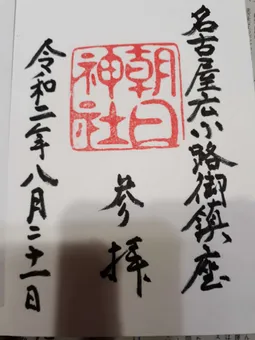 名古屋広小路御鎮座
朝日神社
参拝
令和二年八月二十一日